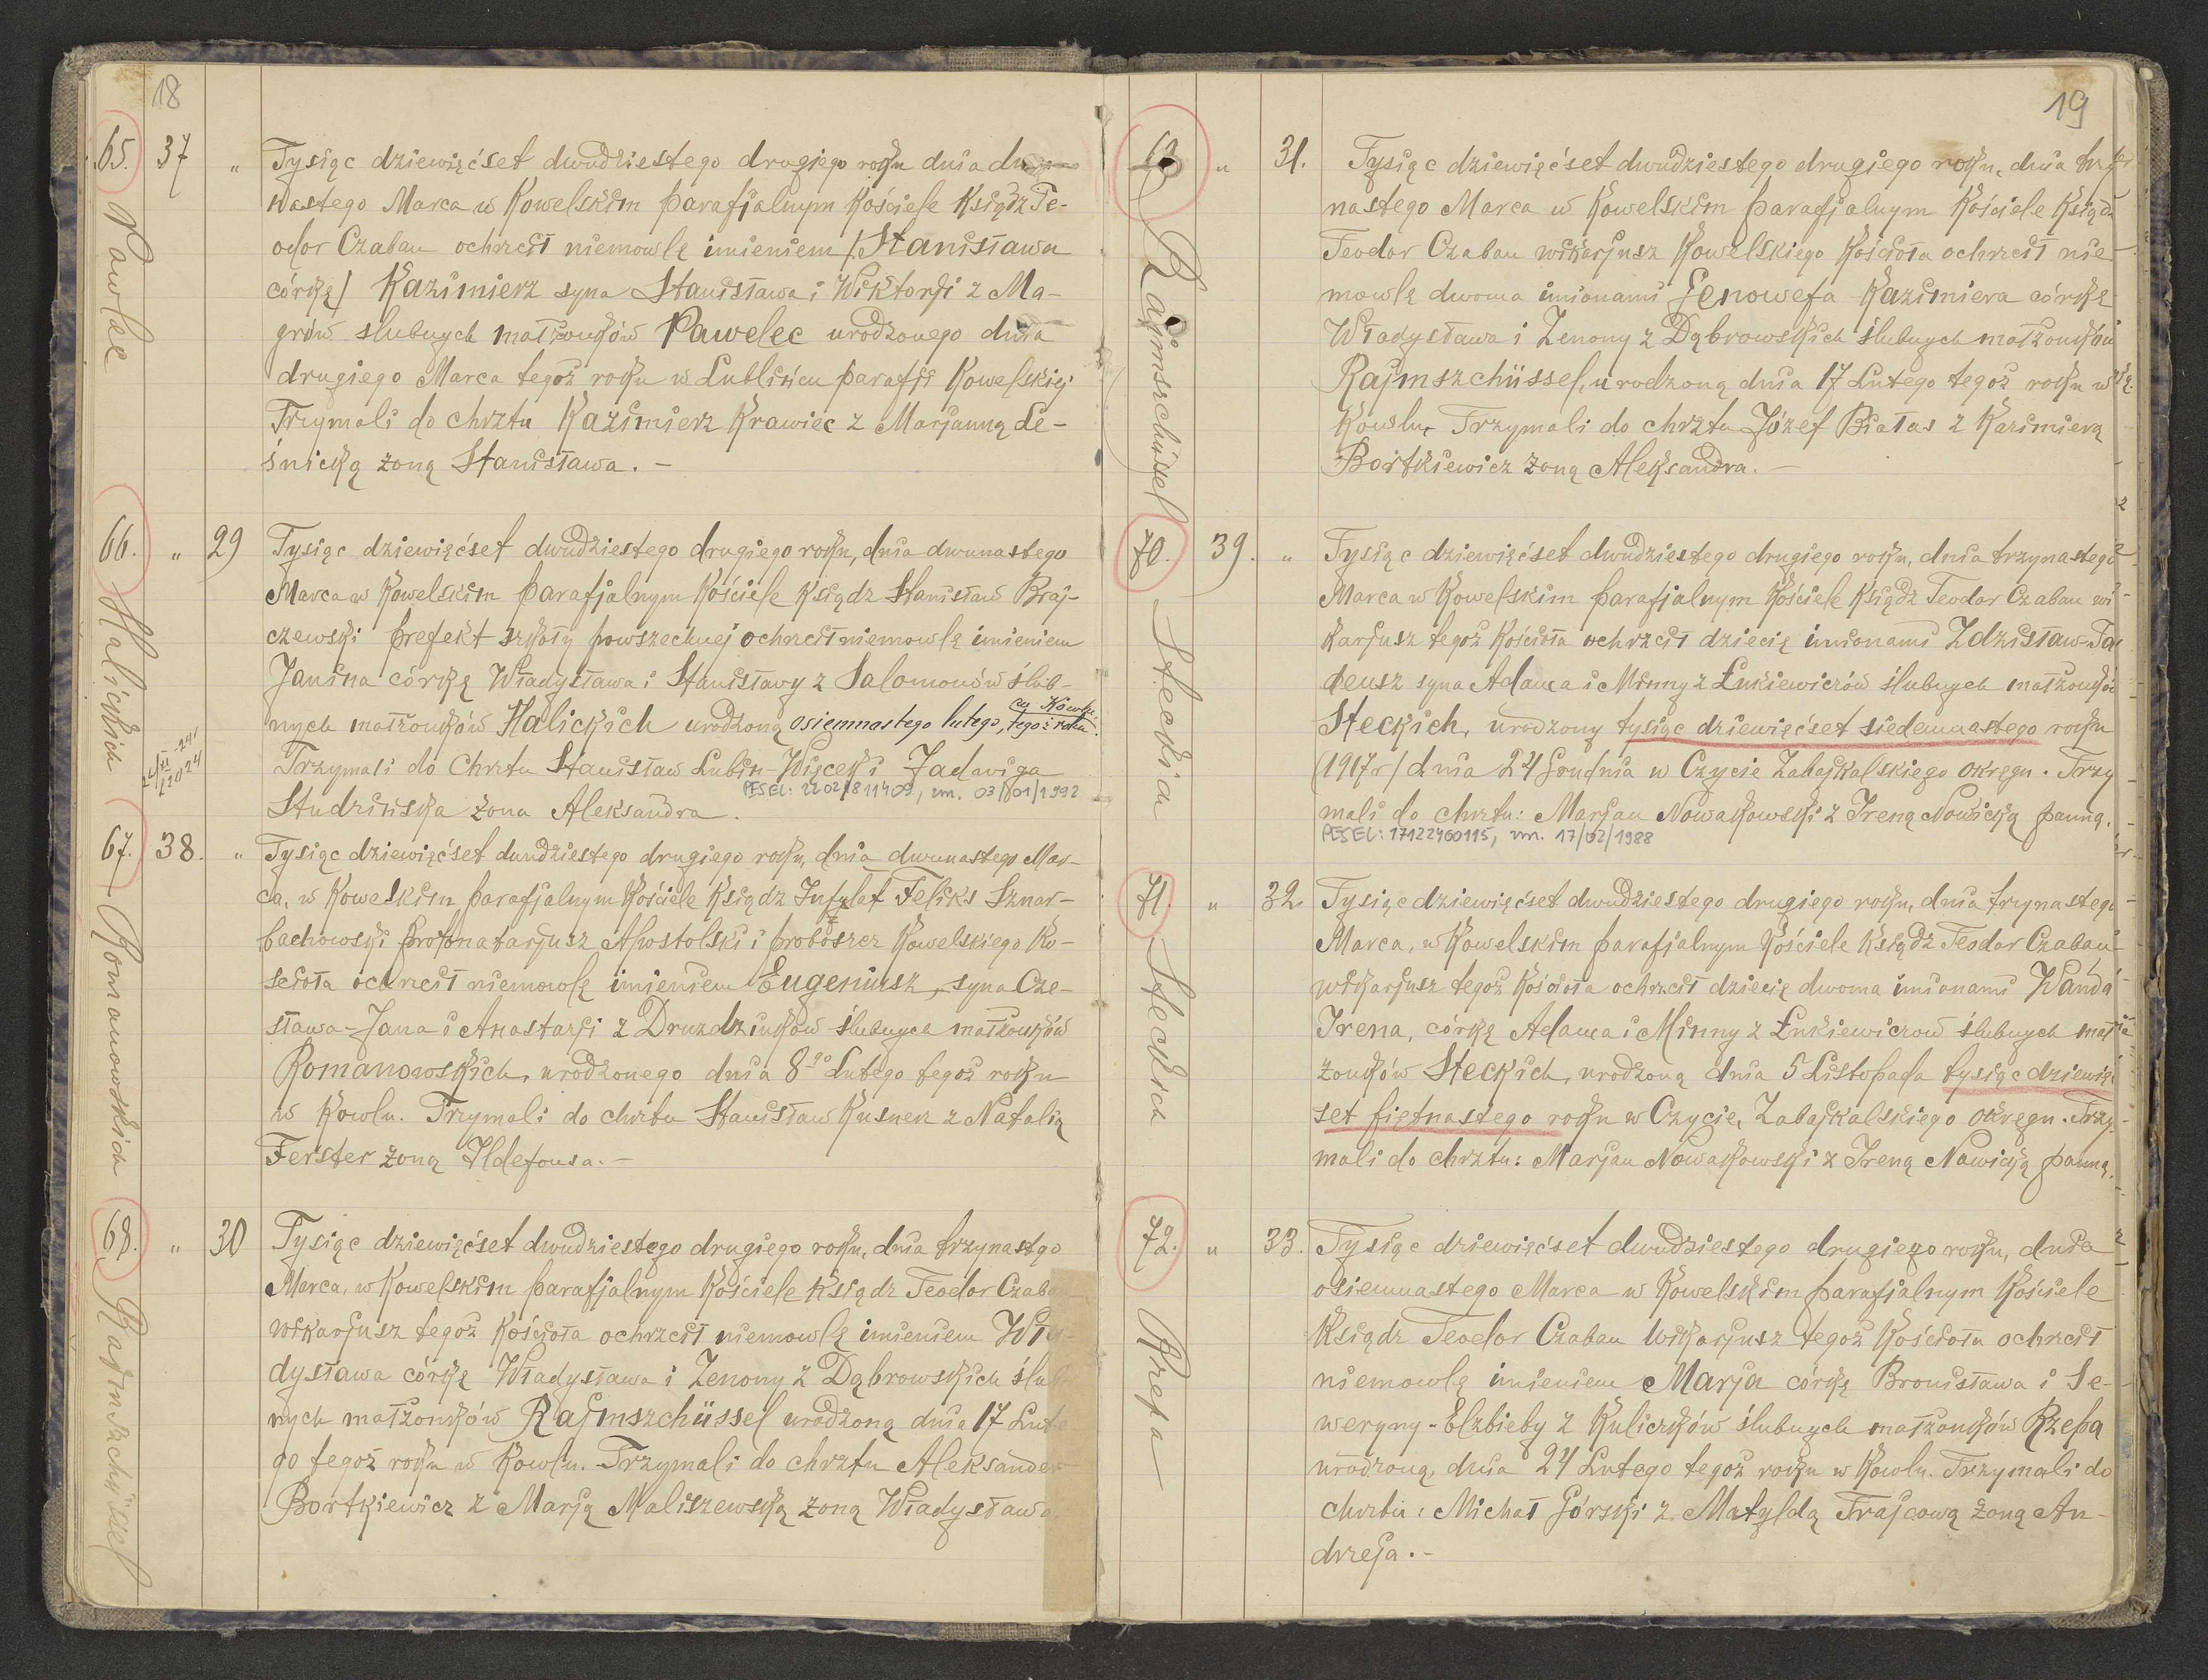 18
65. Pawelec
37 "
Tysiąc dziewięćset dwudziestego drugiego roku dnia
nastego Marca w Kowelskim parafjalnym Kościele Ksiądz Te-
odor Czaban ochrzcił niemowlę imieniem /Stanisława
córkę/ Kazimierz syna Stanisława i Wiktorji z Ma-
grów ślubnych małżonków Pawelec urodzonego dnia
drugiego Marca tegoż roku w Lublińcu parafji Kowelskiej
Trzymali do chrztu Kazimierz Krawiec z Marjanną Le-
śnicką żoną Stanisława. -
66. Halickich
" 29
Tysiąc dziewięćset dwudziestego drugiego roku, dnia dwunastego
Marca w Kowelskim parafjalnym Kościele Ksiądz Stanisław Braj-
czewski prefekt szkoły powszechnej ochrzcił niemowlę imieniem
Janina córkę Władysława i Stanisławy z Salomonów ślub-
nych małżonków Halickich urodzoną osiemnastego lutego, tegoż roku
Trzymali do Chrztu Stanisław Lubin-Więcek i Jadwiga
PESEL: 22021811409, zm. 03/01/1992
Studzińska żona Aleksandra.
67. Romanowskich
38. "
Tysiąc dziewięćset dwudziestego drugiego roku, dnia dwunastego Mar-
ca, w Kowelskim parafjalnym Kościele Ksiądz Infułat Feliks Sznar-
bachowski Protonatarjusz Apostolski i proboszcz Kowelskiego Ko-
ścioła ochrzcił niemowlę imieniem Eugeniusz, syna Cze-
sława-Jana i Anastazji z Druzdziuków ślubnych małżonków
Romanowskich, urodzonego dnia 8go Lutego tegoż roku
w Kowlu. Trzymali do chrztu Stanisław Kusner z Natalią
Ferster żoną Ildefonsa. -
68. Rajmszchüssel
" 30
Tysiąc dziewięćset dwudziestego drugiego roku, dnia trzynastgo
Marca, w Kowelskim parafjalnym Kościele Ksiądz Teodor Czaban
wikarjusz tegoż Kościoła ochrzcił niemowlę imieniem Wła-
dysława córkę Władysława i Zenony z Dąbrowskich ślub-
nych małżonków Rajmszchüssel urodzoną dnia 17 Lute
go tegoż roku w Kowlu. Trzymali do chrztu Aleksander
Bortkiewicz z Marją Maliszewską żoną Władysława.
19
69 Rajmszchüssel
" 31.
Tysiąc dziewięćset dwudziestego drugiego roku, dnia trzy
nastego Marca w Kowelskim parafjalnym Kościele Ksiądz
Teodor Czaban wikarjusz Kowelskiego Kościoła ochrzcił nie-
mowlę dwoma imionami Genowefa-Kazimiera córkę
Władysława i Zenony z Dąbrowskich ślubnych małżonków
Rajmszchüssel, urodzoną dnia 17 Lutego tegoż roku w
Kowlu. Trzymali do chrztu Józef Białas z Kazimierą
Bortkiewicz żoną Aleksandra. -
70. Stecka
39. "
Tysiąc dziewięćset dwudziestego drugiego roku, dnia trzynastego
Marca w Kowelskim parafjalnym Kościele Ksiądz Teodor Czaban wi
karjusz tegoż Kościoła ochrzcił dziecię imionami Zdzisław-Ta
deusz syna Adama i Minny z Łukiewiczów ślubnych małżonków
Steckich, urodzony tysiąc dziewięćset siedemnastego roku
(1917r/ dnia 24 Grudnia w Czycie Zabajkalskiego okręgu. Trzy
mali do chrztu: Marjan Nowakowski z Ireną Nowicką panną.
PESEL: 17122400115, zm. 17/02/1988
71. Steckich
" 32
Tysiąc dziewięćset dwudziestego drugiego roku, dnia trzynastego
Marca, w Kowelskim parafjalnym Kościele Ksiądz Teodor Czaban
wikarjusz tegoż Kościoła ochrzcił dziecię dwoma imionami Wanda
Irena, córkę Adama i Minny z Łukiewiczow ślubnych mał
żonków Steckich, urodzoną dnia 5 Listopada tysiąc dziewię
set piętnastego roku w Czycie, Zabajkalskiego okręgu. Trzy-
mali do chrztu: Marjan Nowakowski z Ireną Nowicką panną.
72. Rzepa
" 33.
Tysiąc dziewięćset dwudziestego drugiego roku, dnia
osiemnastego Marca w Kowelskim parafjalnym Kościele
Ksiądz Teodor Czaban wikarjusz tegoż Kościoła ochrzcił
niemowlę imieniem Marja córkę Bronisława i Se-
weryny-Elzbiety z Kuliczków ślubnych małżonków Rzepa
urodzoną, dnia 24 Lutego tegoż roku w Kowlu. Trzymali do
chrztu: Michał Górski z Matyldą Frajcową żoną An-
drzeja. -